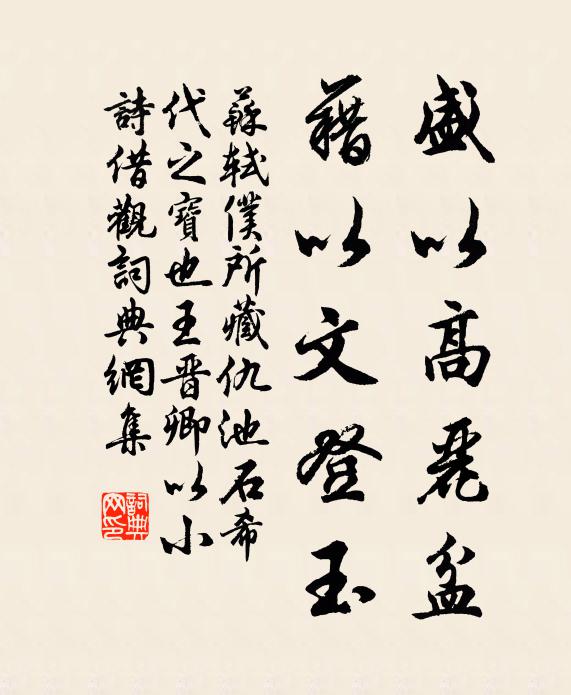 盛以高麗盆
藉以文登玉
蘇軾僕所藏仇池石希
代之寶也王晋卿以小
詩借觀詞典網集
詞典網印